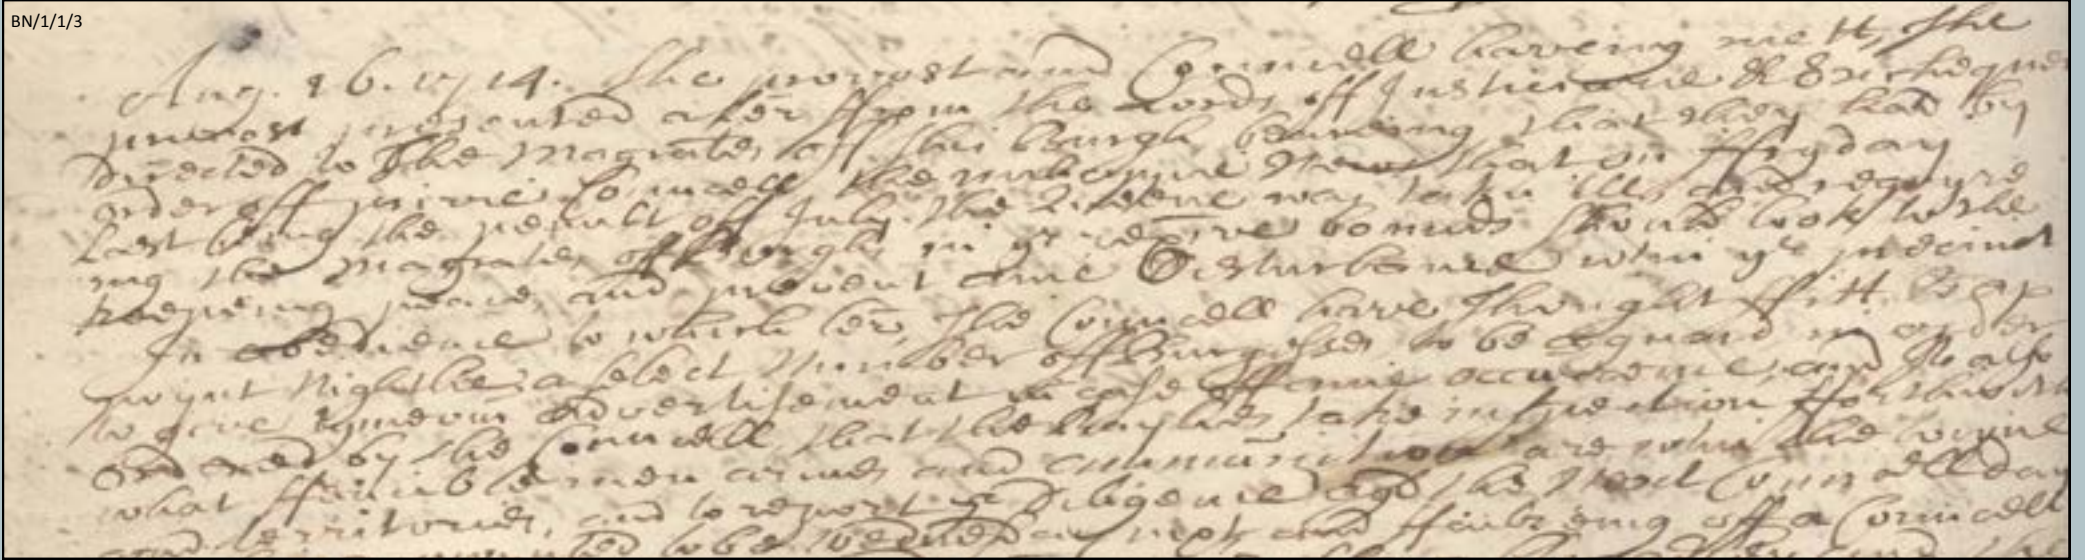 BN/1/1/3
Aug. 16. 1714. The provost and Councell haveing mett, The
provost presented a ler ffrom the Lords off Justiciarie & Exchequer
Directed to the Magrats off this Burgh bearing that they had by
order off privie Councell the unwelcome News that on ffryday
Last being the penult off July the Queene was taken ill, and requyre
ing the Magrats off Burghs in yr re̅ive bounds should look to the
keepeing peace, and prevent anie Disturbance within yr precincts
In obedience to which ler, The Councell have thought ffitt to ap
poynt Nightlie a select Number off Burgesses to be a guard in order
to give tymeous advertisement in case off anie occurrence, and It is also
ordained by the Councell that the baylies take inspection
what ffencible men armes and ammunition are within the toune
and territories, and to report yr Diligence agt the Next Councell day
to be off a Councell